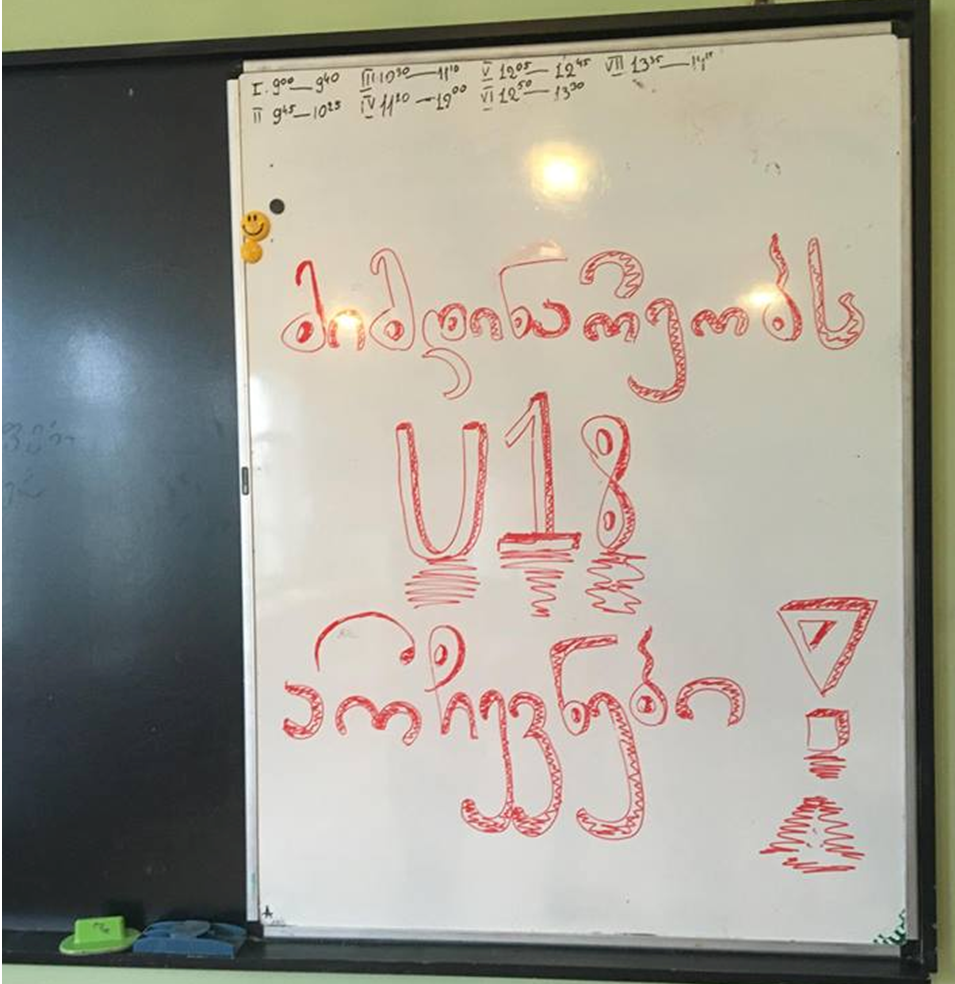 I. 9⁰⁰ — 9⁴⁰ III 10³⁰ — 11¹⁰ V 12⁰⁵ — 12⁴⁵ VII 13³⁵ — 14¹⁵
II 9⁴⁵ — 10²⁵ IV 11²⁰ — 12⁰⁰ VI 12⁵⁰ — 13³⁰
მიმდინარეობს
U18
არჩევნები!